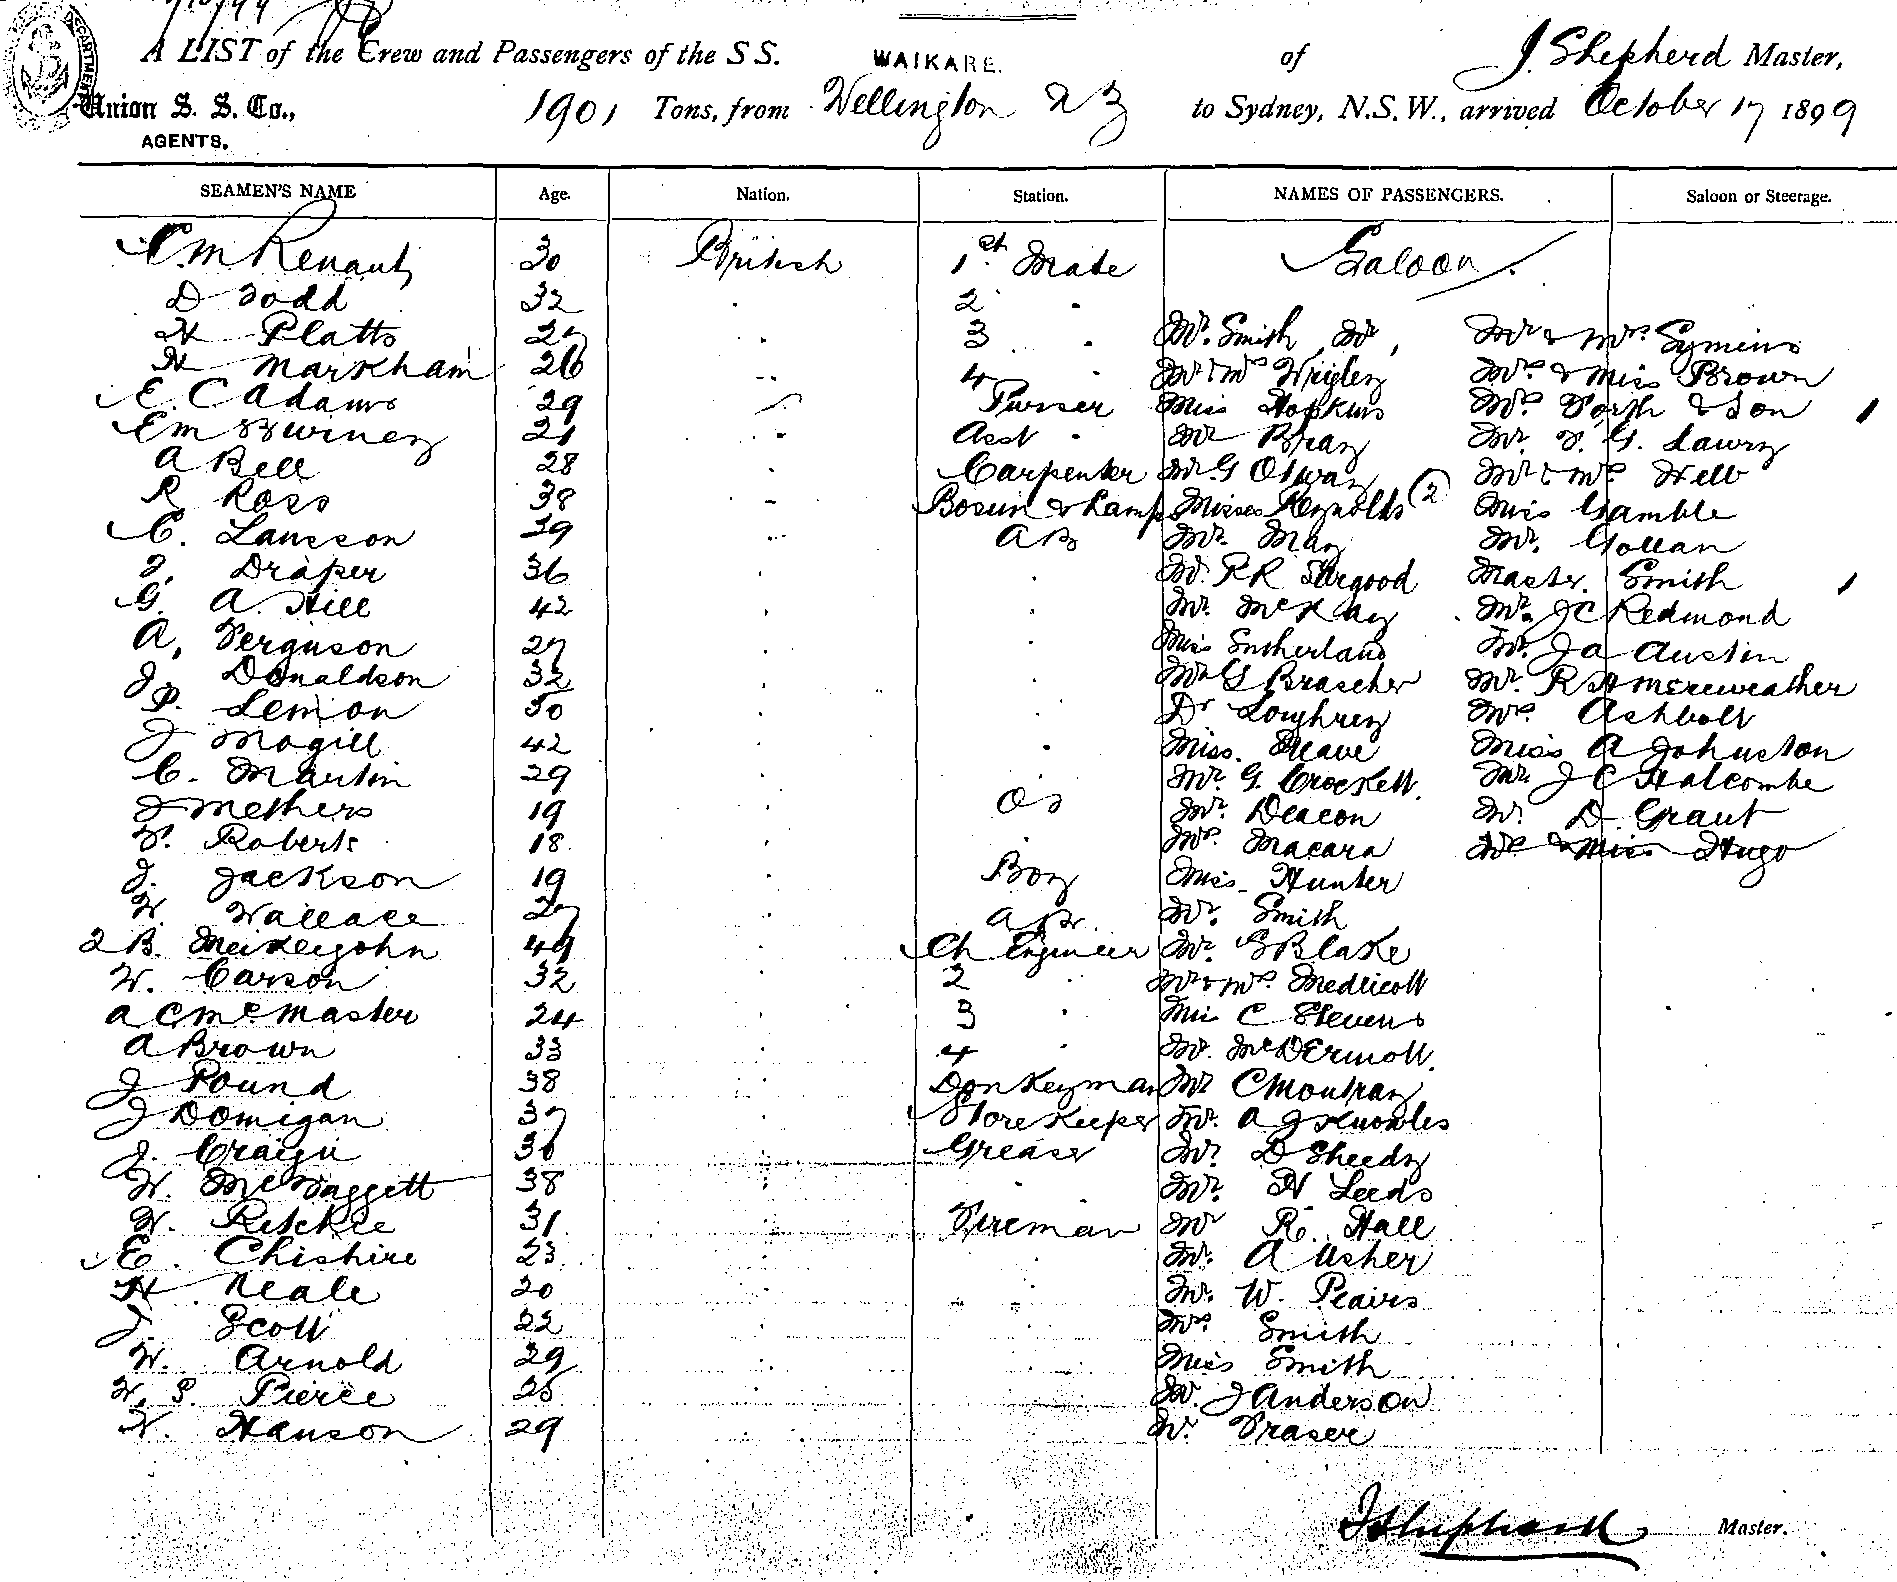 A LIST of the Crew and Passengers of the S S. WAIKARE. of J. Shepherd Master,
Union S. S. Co., 1901 Tons, from Wellington N Z to Sydney, N.S.W., arrived October 17 1899
AGENTS.
SEAMEN'S NAME Age. Nation. Station. NAMES OF PASSENGERS. Saloon or Steerage.
C. M Renaut 30 British 1st Mate Saloon
D Todd 32 " 2 "
H Platts 27 " 3 " Mr. Smith Mr & Mrs Symins
H Markham 26 " 4 " Mr & Mrs Wrigley Mrs & Miss Brown
E. C Adams 29 " Purser Miss Hopkins Mrs & Son
E M Burney 21 " Asst " Mr Bray Mr. F. G. Lawry
A Bell 28 " Carpenter Mr G Otway Mr & Mrs
R Ross 38 " Bosun & Lamps Misses Reynolds (2) Miss Gamble
C. Lausson 39 " A B Mr. May Mr. Gollan
J. Draper 36 " " Mr. R R Sargood Master. Smith
G. A. Hill 42 " " Mr. McKay Mr. J C Redmond
A. Ferguson 27 " " Miss Sutherland Mr. J A Austin
J. Donaldson 32 " " Mr G Brascher Mr. R H Mereweather
P. Lemon 50 " " Dr Loughrey Mrs Ashbolt
J Magill 42 " " Miss. Meave Miss A Johnston
C. Martin 29 " " Mr. G. Crockett. Mr. J C Halcombe
J Methers 19 " O S Mr. Deacon Mr. D. Grant
F. Roberts 18. " Mrs. Macara Mrs & Miss Hugo
J. Jackson 19 " Boy Miss. Hunter
W. Wallace 27 " A B. Mr. Smith
J B. Meiklejohn 49 " Ch Engineer Mr. G Blake
W. Carson 32 " 2 " Mr & Mrs Medlicott
A C McMaster 24 " 3 " Miss C Stevens
A Brown 33 " 4 " Mr. McDermott.
J Pound 38 " Donkeyman Mr C Moutray
J Domigan 37 " Storekeeper Mr. A J Knowles
J. Craigu 36 " Greaser Mr. D Sheedy
W. McTaggett 38 " " Mr. H Leeds
W. Ritchie 31 " Fireman Mr R. Hall
E. Chishire 23 " " Mr. A Usher
H. Neale 20 " " Mr. W. Peairs
J. Scott 22 " " Mrs Smith
W. Arnold 29 " " Miss Smith
W. S. Pierce 25 " Mr. J Anderson
W. Hanson 29 " Mr. Fraser
J Shepherd Master.